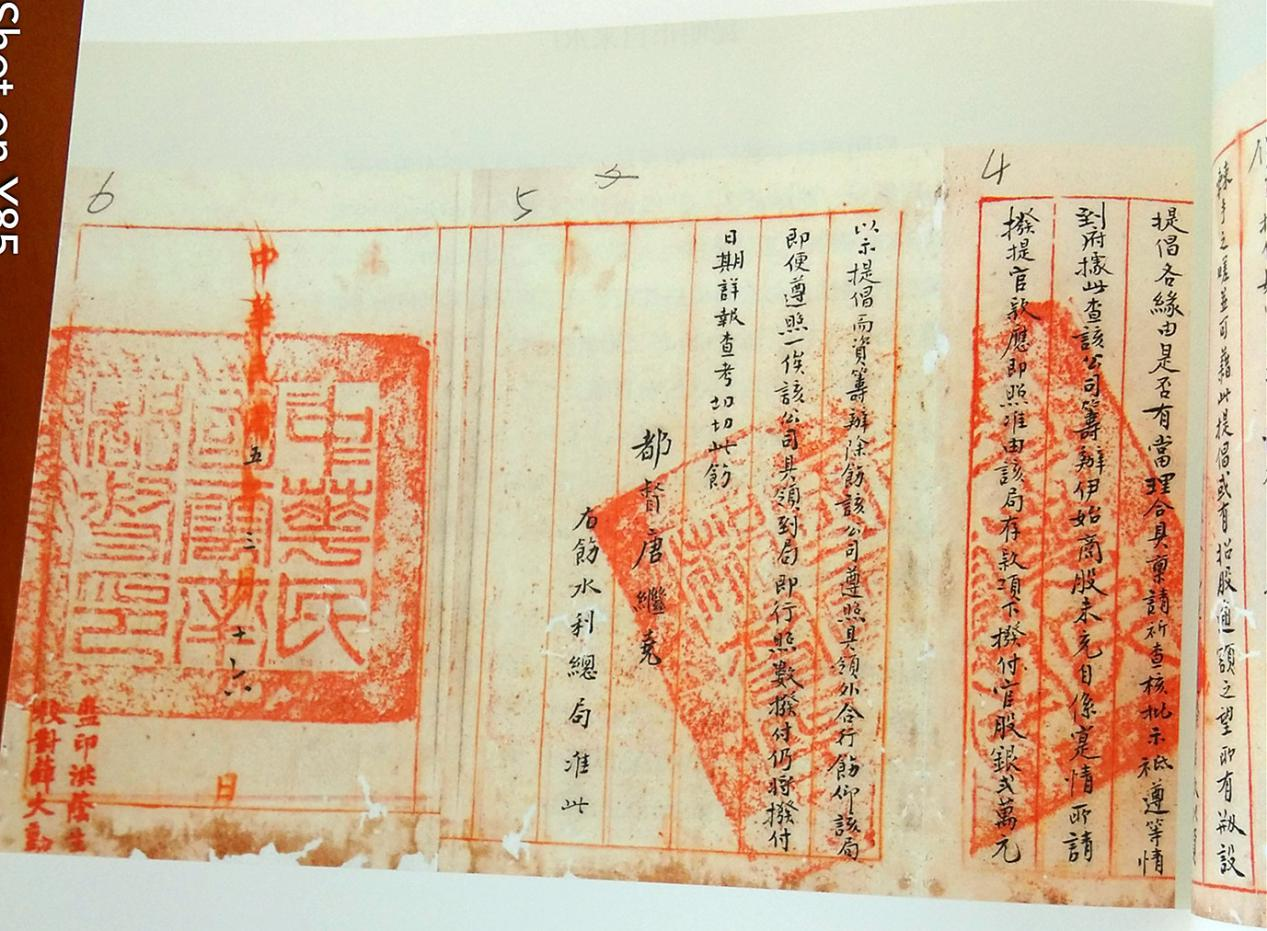 辣手之嗟並可藉此提倡或有招股通額之望所有擬設
4
提倡各緣由是否有當理合具稟請祈查核批示祗遵等情
到府據此查該公司籌辦伊始商股未充自係寔情所請
撥提官欵應即照准由該局存欵項下撥付官股銀弍萬元
5
以示提倡而資籌辦除飭該公司遵照具領外合行飭仰該局
即便遵照一俟該公司具領到局即行照数撥付仍將撥付
日期詳報查考切切此飭
都督唐繼堯
右飭水利總局准此
6
中華民國五年三月十六日
中華民
國雲南
都督印
監印洪蔭生
校對薛大勳
Shot on Y85